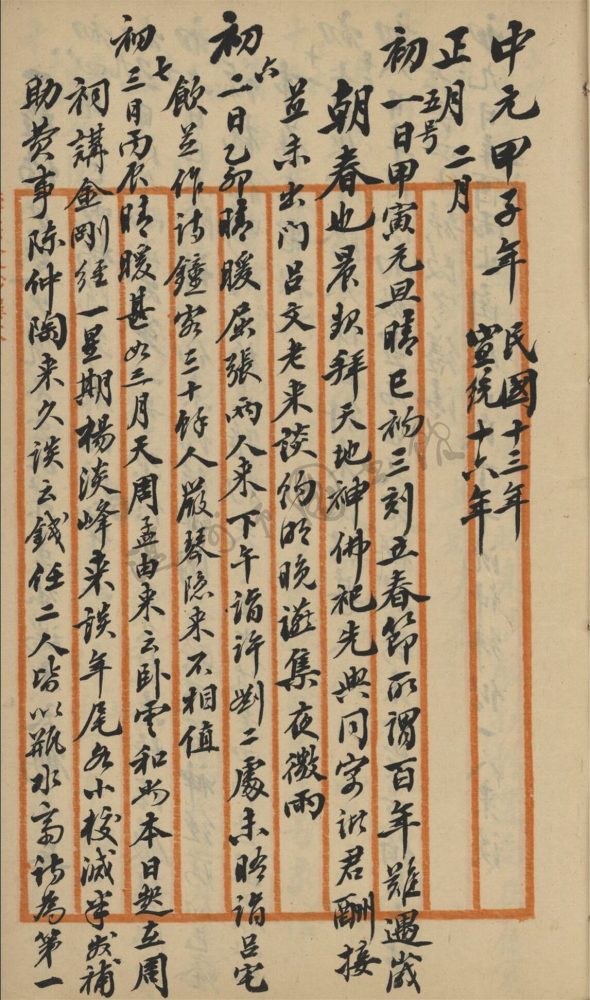 中元甲子年 民國十三年
宣統十六年
正月 二月
五号
初一日甲寅元旦晴巳初三刻立春節所謂百年難遇歲
朝春也晨起拜天地神佛祀先與同寓諸君酬接
並未出门吕文老来談约明晚讌集夜微雨
六
初二日乙卯晴暖屈張兩人来下午詣許劉二處未晤詣吕宅
飲並作诗鐘客三十餘人嚴琴隐来不相值
七
初三日丙辰晴暖甚如三月天周孟由来云卧雲和尚本日起在周
祠講金剛经一星期楊淡峰来談年尾各小校減半发補
助费事陈仲陶来久谈云錢任二人皆以瓶水齋诗為第一